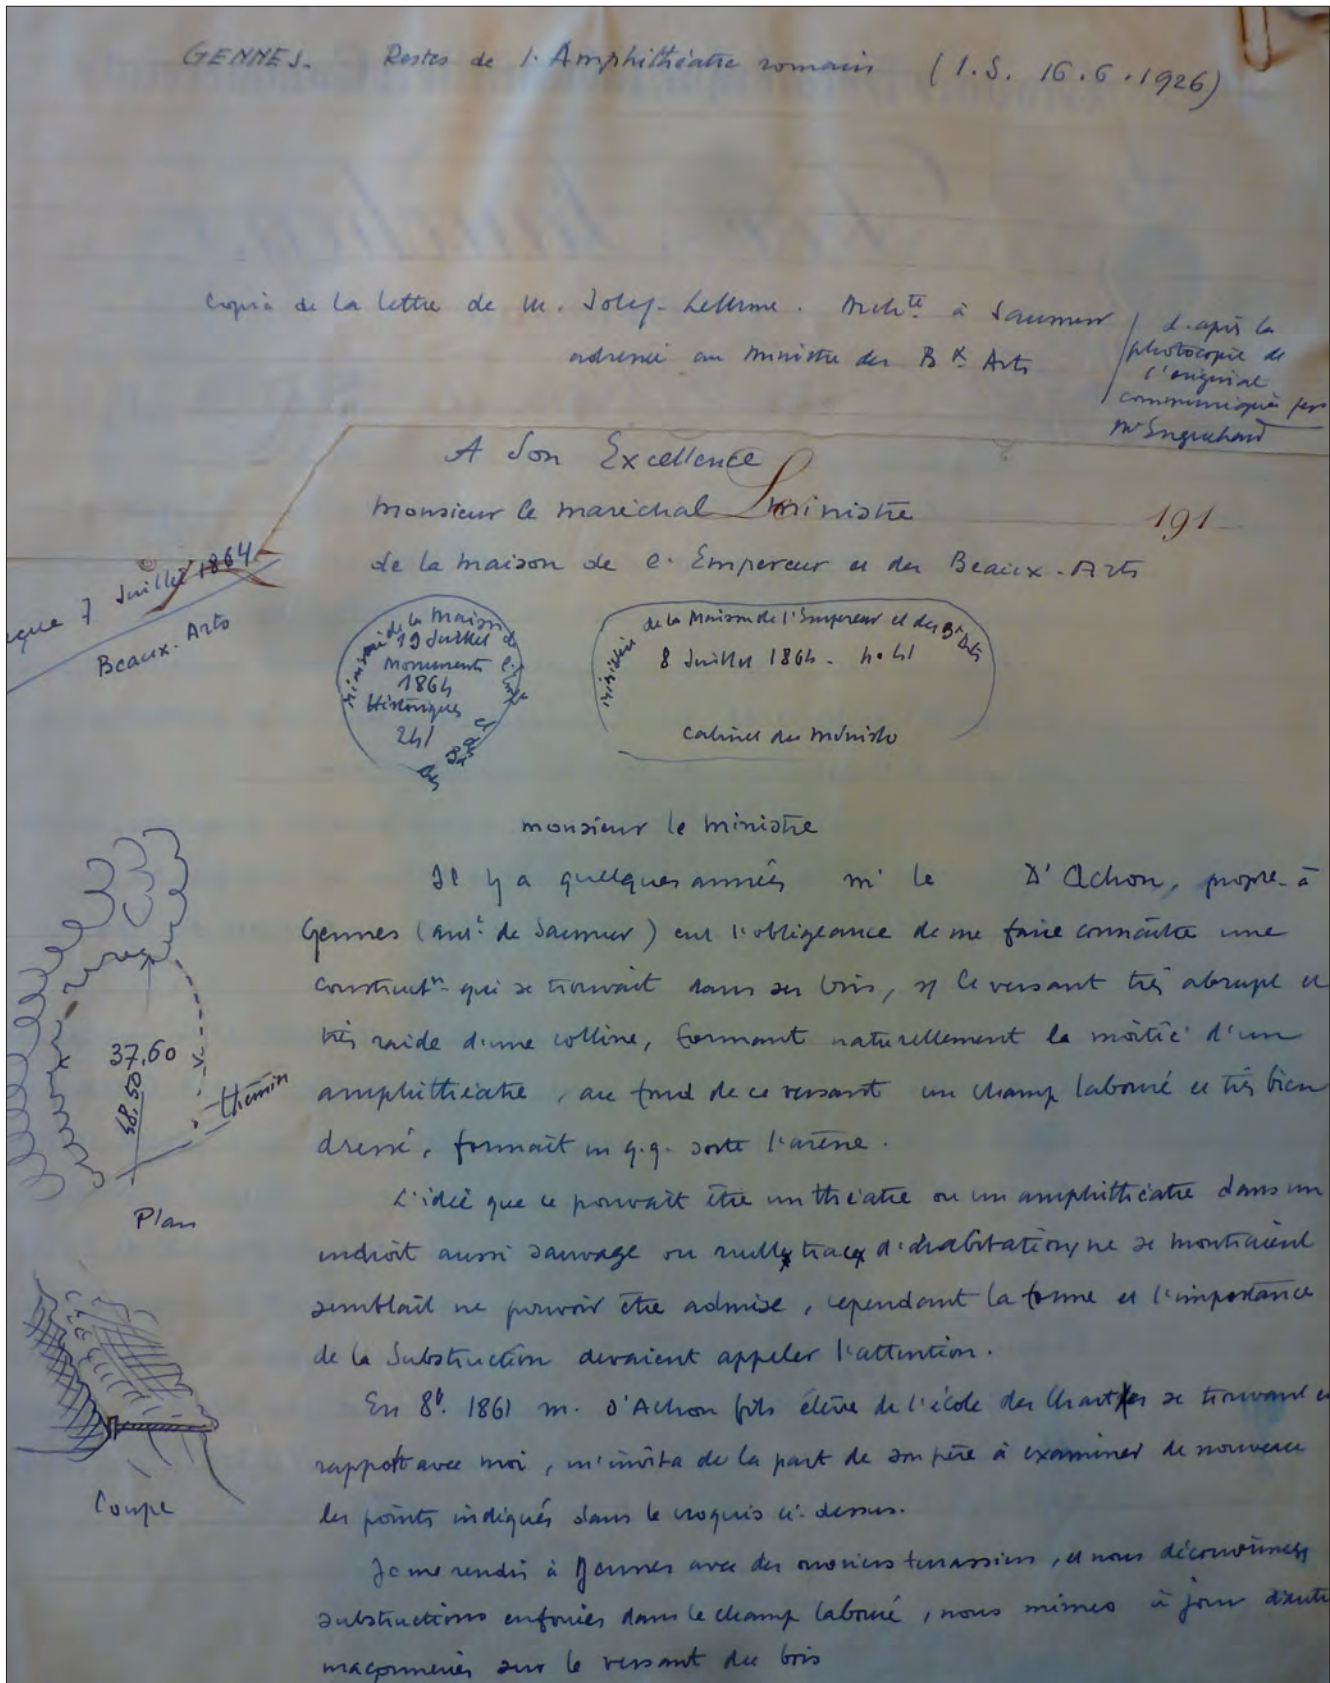 GENNES. Restes de l'Amphithéatre romain (I.S. 16.6.1926)
Copie de la lettre de M. Joly-Leterme. Archte à Saumur
adressée au Ministre des Bx Arts
d'après la
photocopie de
l'original
communiquée par
Mr Enguehard
A Son Excellence
Monsieur le maréchal Ministre
191
de la maison de l'Empereur et des Beaux-Arts
7 Juillet 1864
Beaux-Arts
Ministère de la Maison de l'Emp. et des Bx Arts
19 Juillet
Monuments
1864
Historiques
241
Ministère de la Maison de l'Empereur et des Bx Arts
8 Juillet 1864 - n. 41
Cabinet du Ministre
monsieur le ministre
Il y a quelques années mr le D'Achon, propre. à
Gennes (arrt de Saumur) eut l'obligeance de me faire connaître une
constructn. qui se trouvait dans ses bois, sr le versant très abrupt et
très raide d'une colline, formant naturellement la moitié d'un
amphithéatre, au fond de ce versant un champ labouré et très bien
dressé, formait en q.q. sorte l'arène.
37,60
48,50
Chemin
Plan
L'idée que ce pouvait être un théatre ou un amphithéatre dans un
endroit aussi sauvage ou nulle trace d'habitation ne se montraient
semblait ne pouvoir être admise, cependant la forme et l'importance
de la Substruction devaient appeler l'attention.
Coupe
En 8b. 1861 m. D'Achon fils élève de l'école des Chartes se trouvant en
rapport avec moi, m'invita de la part de son père à examiner de nouveau
les points indiqués dans le croquis ci-dessus.
Je me rendis à Gennes avec des ouvriers terrassiers, et nous découvrîmes
substructions enfouies dans le champ labouré, nous mîmes à jour d'autres
maçonneries sur le versant du bois